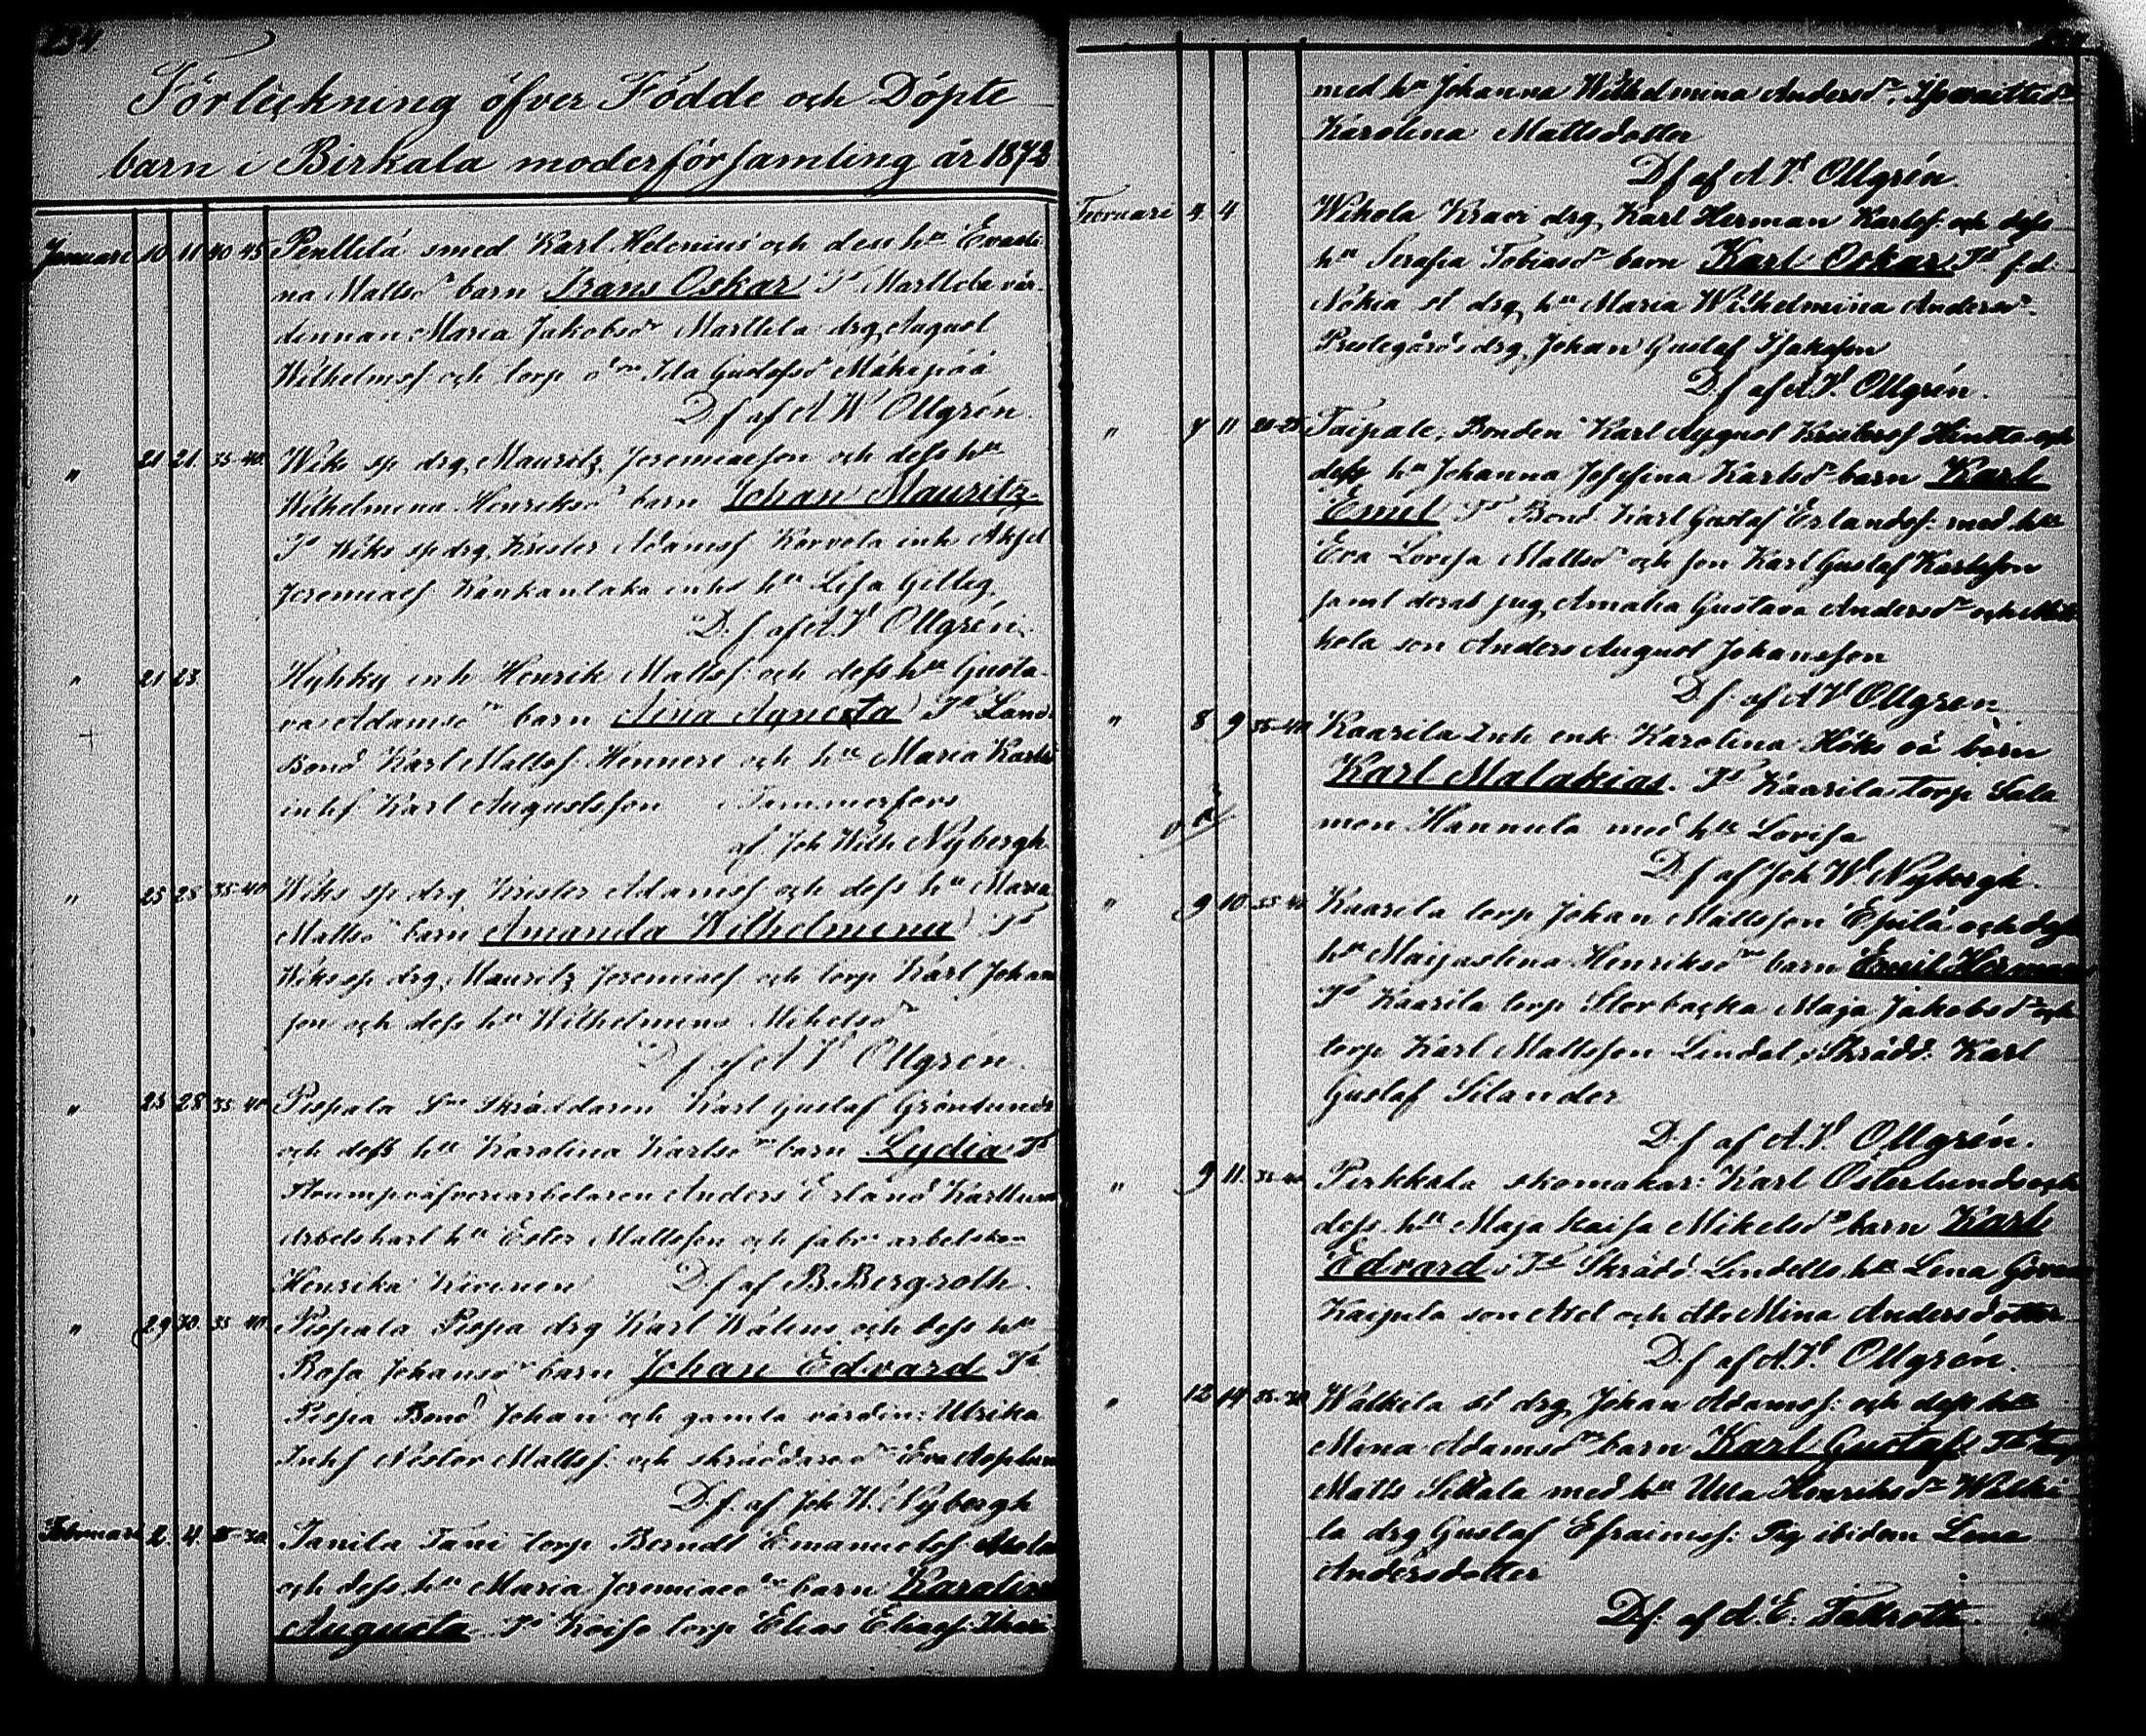 234
Förteckning öfver Födde och Döpte
barn i Birkala moderförsamling år 1873
Januari 10 11 40 45 Penttilä smed Karl Helenius och dess hu Evasti
na Mattsdr barn Frans Oskar Ts Marttila vär-
dinnan Maria Jakobsdr Marttila drg August
Wilhelmsf och torp dr Ida Gustafsdr Mähipää
D.f af A W Ollgrén.
" 21 21. 35-40. Wiks sp drg Mauritz Jeremiaesson och dess hu
Wilhelmina Henriksdr barn Johan Mauritz.
Ts Wiks sp drg Krister Adamsf Korvola inh Aksel
Jeremiaef Kankanlaka inhs hu Lisa Gillig.
D.f af A.W Ollgrén.
" 21 23 Hyhky inh Henrik Mattsf: och dess hu Gusta-
va Adamsdr barn Aina Agneta Ts Land-
Bond Karl Mattsf Henneri och hu Maria Karls
inhf Karl Augustsson Tammerfors
af Joh Wilh Nybergh
" 25 28 35-40 Wiks sp drg Krister Adamsf och dess hu Maria
Mattsdr barn Amanda Wilhelmina Ts
Wiks sp drg Mauritz Jeremiaef och torp Karl Johans
son och dess hu Wilhelmina Mikelsdr
D f af A W Ollgrén.
" 25 28 35 40 Pispala Sme Skräddaren Karl Gustaf Grönlunds
och dess hu Karolina Karlsdr barn Lydia Ts
Anders Erland
Arbetskarl hu Ester Mattsson och fabr. arbetskan
Henrika Kivinen D.f af B. Bergroth.
" 29 30. 35 40 Pispala Pispa drg Karl Walens och dess hu
Rosa Johansdr barn Johan Edvard Ts
Pispa Bond Johan och gamla värdin: Ulrika
Inhf Nestor Mattsf: och skräddare dr Eva Asplund
D.f. af Joh W. Nybergh
Februari 2. 4. 25-30. Tanila Tani torp Berndt Emanuelsf
och dess hu Maria Jeremiaedr barn Karolina
Augusta Ts Koiso torp Elias Eliaef:
med hu Johanna Wilhelmina Andersdr,
Karolina Mattsdotter
D f af A W Ollgrén.
Februari 4 4 Wihola Kravi drg Karl Herman Karlsf: och dess
hu Serafia Tobiasdr barn Karl Oskar Ts f.d.
Nokia st drg hu Maria Wilhelmina Andersdr.
Prestegårds drg Johan Gustaf Isaksson
D f af A W. Ollgrén.
" 7 11 20-25 Taipale, Bonden Karl August Kristersf Hintta och
dess hu Johanna Josefina Karlsdr barn Karl
Emil Ts Bond Karl Gustaf Erlandsf: med hu
Eva Lovisa Mattsdr och son Karl Gustaf Karlsson
samt deras pig Amalia Gustava Andersdr och
kola son Anders August Johansson
D f af A W Ollgren
" 8 9 35-40 Kaarila Inh enk Karolina Höks oä barn
Karl Malakias. Ts Kaarila torp Salo
mon Hannula med hu Lovisa
oä
D f af Joh W. Nybergh.
" 9 10 35 40 Kaarila torp Johan Mattsson Epilä och dess
hu Maijastina Henriksdr barn Emil Herman
Ts Kaarila torp Storbacka Maja Jakobsdr och
torp Karl Mattsson Lindal, Skrädd. Karl
Gustaf Silander
D.f af A.W Ollgrén.
" 9 11. 35-40 Pirkkala skomakar: Karl Österlunds och
dess hu Maja Kaisa Mikelsdr barn Karl
Edvard. Ts Skrädd. Lindells hu Lena
Kaipila son Axel och dtr Mina Andersdotter
D.f af A.W. Ollgrén.
" 12 14 25-30 Walkila st drg Johan Adamsf: och dess hu
Mina Adamsdr barn Karl Gustaf Ts torp
Matts Sillala med hu Ulla Henriksdr Walki
la drg Gustaf Efraimsf: Pig ibidem Lena
Andersdotter
D.f: af A. E. Tallroth.